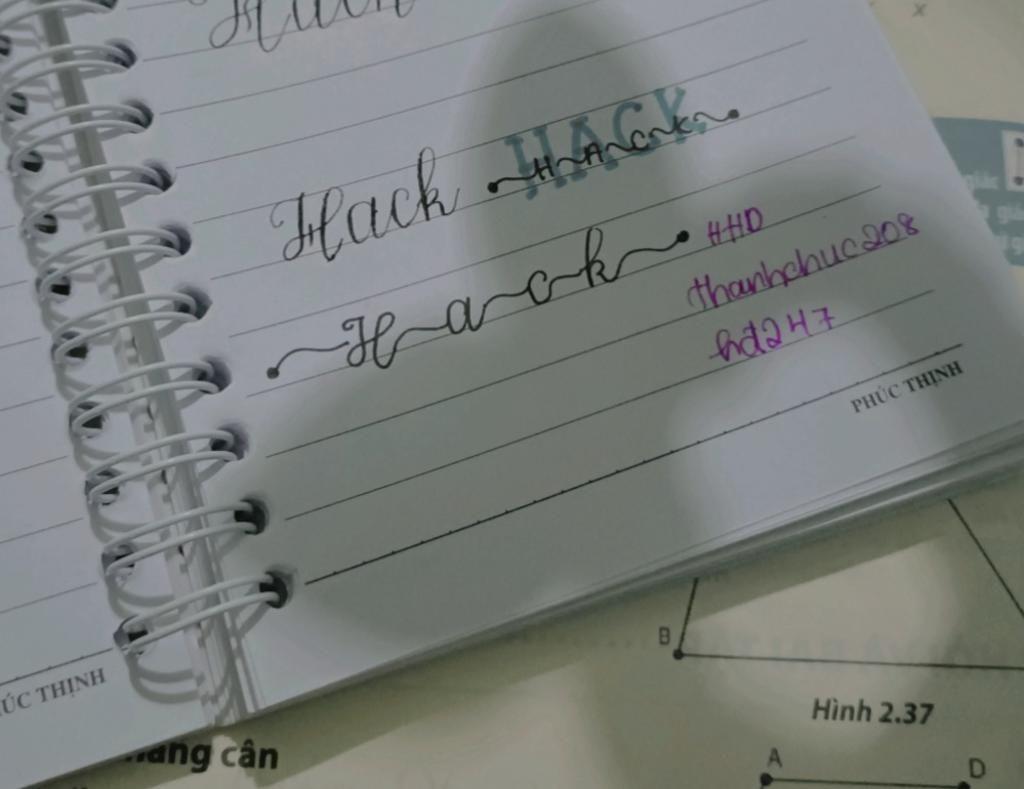 Hack
Hack H A C K
HACK
Hack HHD
thanhchuc208
hđ247
PHÚC THỊNH
ÚC THỊNH
B
Hình 2.37
ang cân
A D